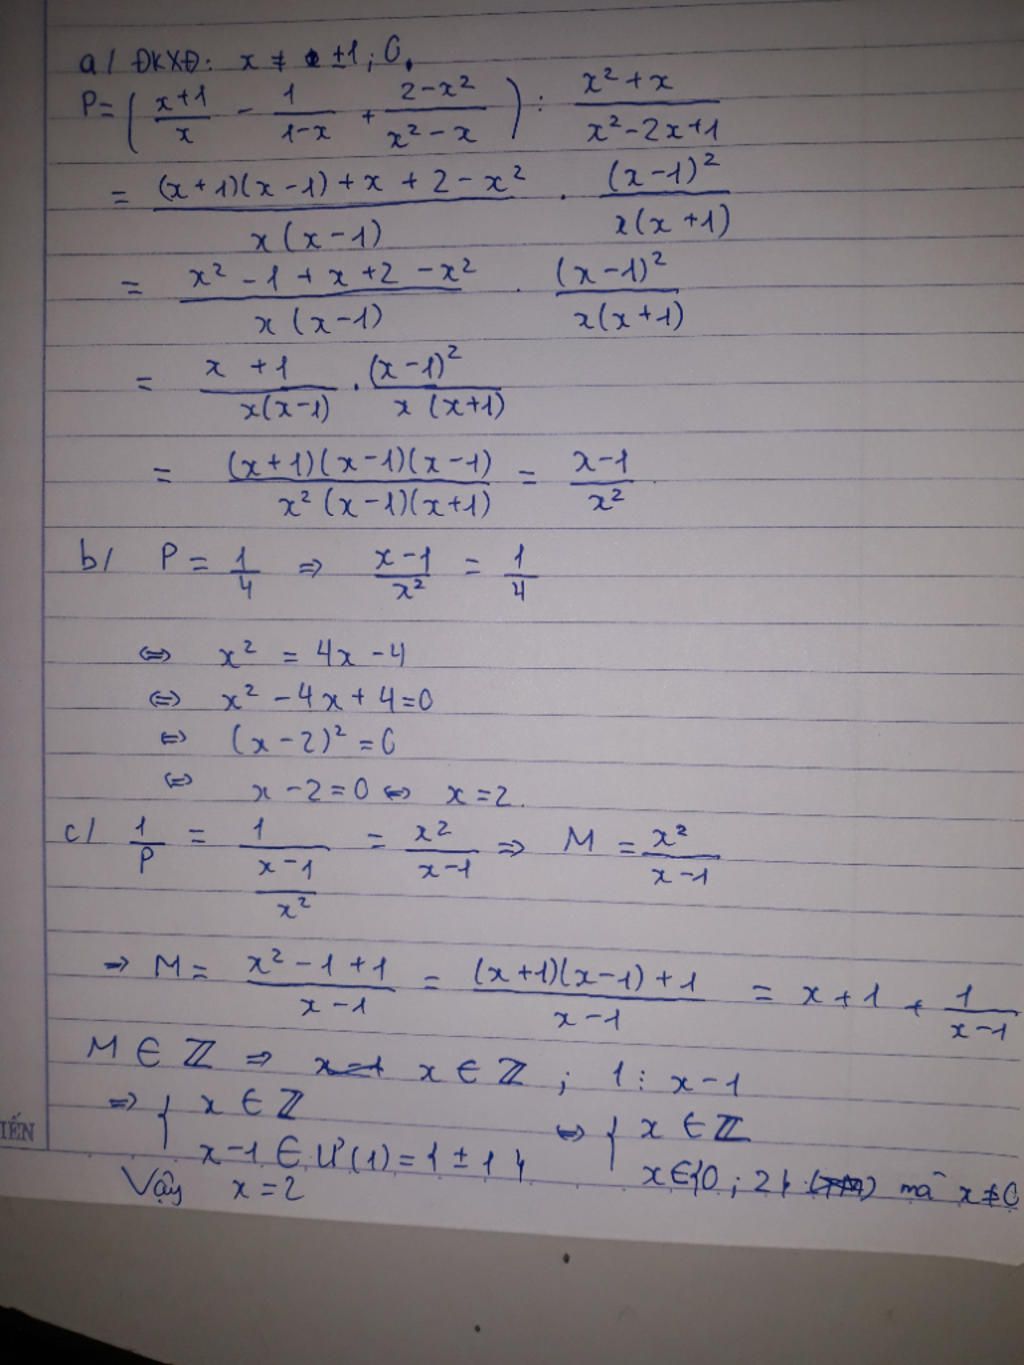 a/ ĐKXĐ: x ≠ ±1; 0.
P = ( (x+1)/x - 1/(1-x) + (2-x²)/(x²-x) ) : (x²+x)/(x²-2x+1)
= ((x+1)(x-1)+x+2-x²)/(x(x-1)) . (x-1)²/(x(x+1))
= (x²-1+x+2-x²)/(x(x-1)) . (x-1)²/(x(x+1))
= (x+1)/(x(x-1)) . (x-1)²/(x(x+1))
= ((x+1)(x-1)(x-1))/(x²(x-1)(x+1)) = (x-1)/x²
b/ P = 1/4 ⇒ (x-1)/x² = 1/4
⇔ x² = 4x-4
⇔ x²-4x+4=0
⇔ (x-2)²=0
⇔ x-2=0 ⇔ x=2.
c/ 1/P = 1/((x-1)/x²) = x²/(x-1) ⇒ M = x²/(x-1)
→ M = (x²-1+1)/(x-1) = ((x+1)(x-1)+1)/(x-1) = x+1 + 1/(x-1)
M ∈ ℤ ⇒ x ∈ ℤ ; 1 ⋮ x-1
⇒ { x ∈ ℤ ⇔ { x ∈ ℤ
x-1 ∈ Ư(1) = {±1} x ∈ {0; 2} mà x ≠ 0
Vậy x=2
IẾN